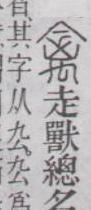 禽走獸總名
其字从厹厹爲